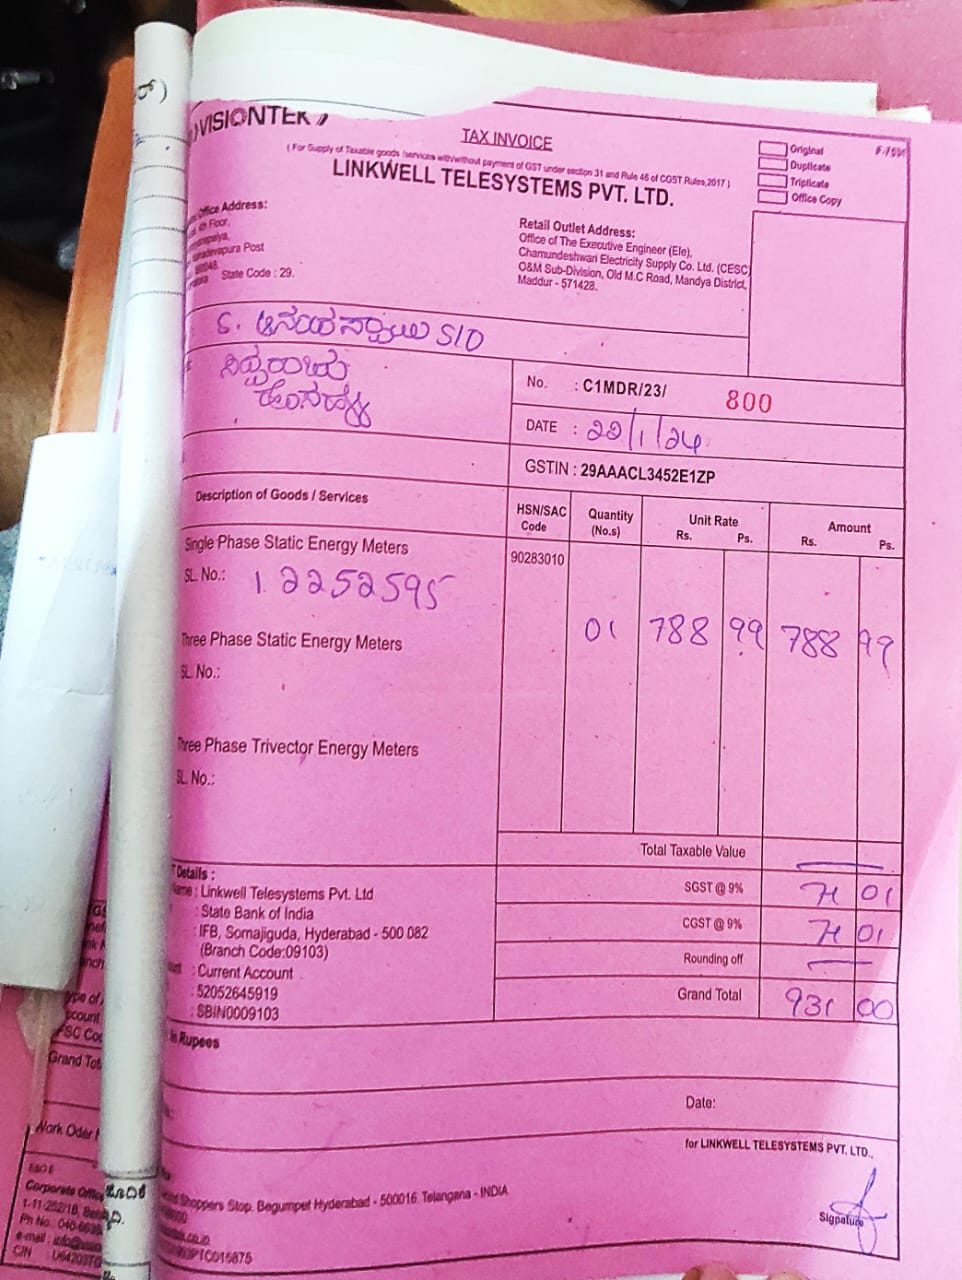 VISIONTEK
TAX INVOICE
( For Supply of Taxable goods /services with/without payment of GST under section 31 and Rule 46 of CGST Rules,2017 )
LINKWELL TELESYSTEMS PVT. LTD.
Original
Duplicate
Triplicate
Office Copy
Office Address:
4th Floor,
Post
State Code : 29.
Retail Outlet Address:
Office of The Executive Engineer (Ele),
Chamundeshwari Electricity Supply Co. Ltd. (CESC)
O&M Sub-Division, Old M.C Road, Mandya District,
Maddur - 571428.
S/O
No. : C1MDR/23/ 800
DATE : 22/1/24
GSTIN : 29AAACL3452E1ZP
Description of Goods / Services
HSN/SAC Code
Quantity (No.s)
Unit Rate Rs. Ps.
Amount Rs. Ps.
Single Phase Static Energy Meters
90283010
SL. No.: 12252595
01 788 99 788 99
Three Phase Static Energy Meters
SL. No.:
Three Phase Trivector Energy Meters
SL. No.:
Total Taxable Value
SGST @ 9% 71 01
CGST @ 9% 71 01
Rounding off
Grand Total 931 00
Details :
: Linkwell Telesystems Pvt. Ltd
: State Bank of India
: IFB, Somajiguda, Hyderabad - 500 082
(Branch Code:09103)
: Current Account
: 52052645919
: SBIN0009103
in Rupees
Date:
for LINKWELL TELESYSTEMS PVT. LTD.,
Signature
Shoppers Stop, Begumpet Hyderabad - 500016. Telangana - INDIA
Grand Tot
Corporate Office
Ph No.
e-mail :
CIN